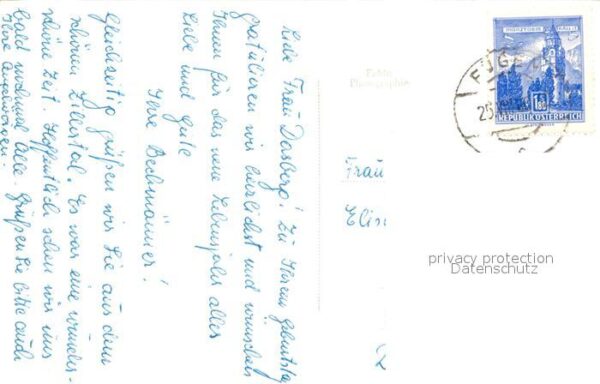 Liebe Frau Dasberg! Zu Ihrem Geburtstag
gratulieren wir herzlichst und wünschen
Ihnen für das neue Lebensjahr alles
Liebe und Gute
Ihre Bechmänner!
Gleichzeitig grüßen wir Sie aus dem
schönen Zillertal. Es war eine wunder-
schöne Zeit. Hoffentlich sehen wir uns
bald nochmal alle. Grüßen Sie bitte auch
Ihre Angehörigen.
Foto
Photographie
Frau
Elis
REPUBLIK ÖSTERREICH
1.80
FÜGE
25.
privacy protection
Datenschutz